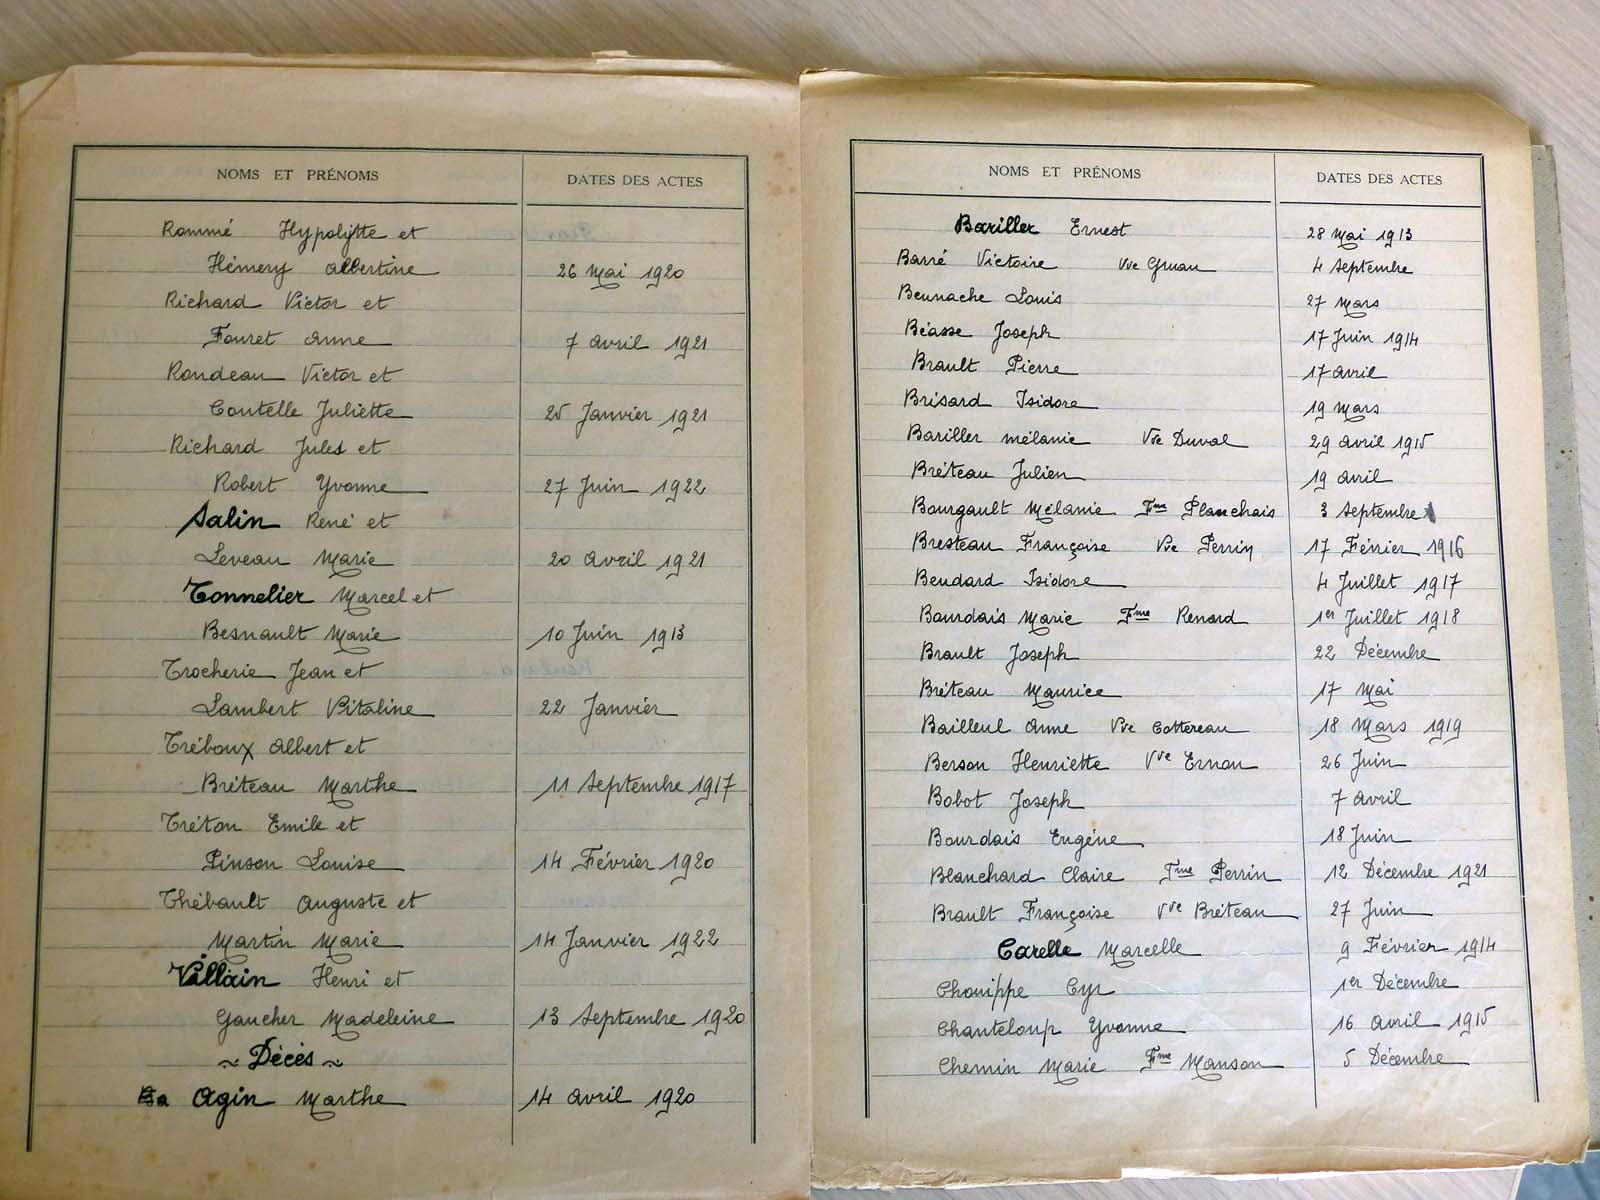 NOMS ET PRÉNOMS DATES DES ACTES
Rommé Hypolytte et
Hémery Albertine 26 Mai 1920
Richard Victor et
Fouret Anne 7 Avril 1921
Rondeau Victor et
Coutelle Juliette 25 Janvier 1921
Richard Jules et
Robert Yvonne 27 Juin 1922
Salin René et
Leveau Marie 20 Avril 1921
Tonnelier Marcel et
Besnault Marie 10 Juin 1913
Trocherie Jean et
Lambert Vitaline 22 Janvier
Tréboux Albert et
Bréteau Marthe 11 Septembre 1917
Tréton Emile et
Pinson Louise 14 Février 1920
Thébault Auguste et
Martin Marie 14 Janvier 1922
Villain Henri et
Gaucher Madeleine 13 Septembre 1920
~ Décès ~
Agin Marthe 14 Avril 1920
NOMS ET PRÉNOMS DATES DES ACTES
Bariller Ernest 28 Mai 1913
Barré Victoire Vve Gruau 4 Septembre
Beunache Louis 27 Mars
Béasse Joseph 17 Juin 1914
Brault Pierre 17 Avril
Brisard Isidore 19 Mars
Bariller Mélanie Vve Duval 29 Avril 1915
Bréteau Julien 19 Avril
Bourgault Mélanie Fme Planchais 3 Septembre
Bresteau Françoise Vve Perrin 17 Février 1916
Beudard Isidore 4 Juillet 1917
Bourdais Marie Fme Renard 1er Juillet 1918
Brault Joseph 22 Décembre
Bréteau Maurice 17 Mai
Bailleul Anne Vve Cottereau 18 Mars 1919
Berson Henriette Vve Ernou 26 Juin
Bobot Joseph 7 Avril
Bourdais Eugène 18 Juin
Blanchard Claire Fme Perrin 12 Décembre 1921
Brault Françoise Vve Bréteau 27 Juin
Carelle Marcelle 9 Février 1914
Chouippe Cyr 1er Décembre
Chanteloup Yvonne 16 Avril 1915
Chemin Marie Fme Manson 5 Décembre